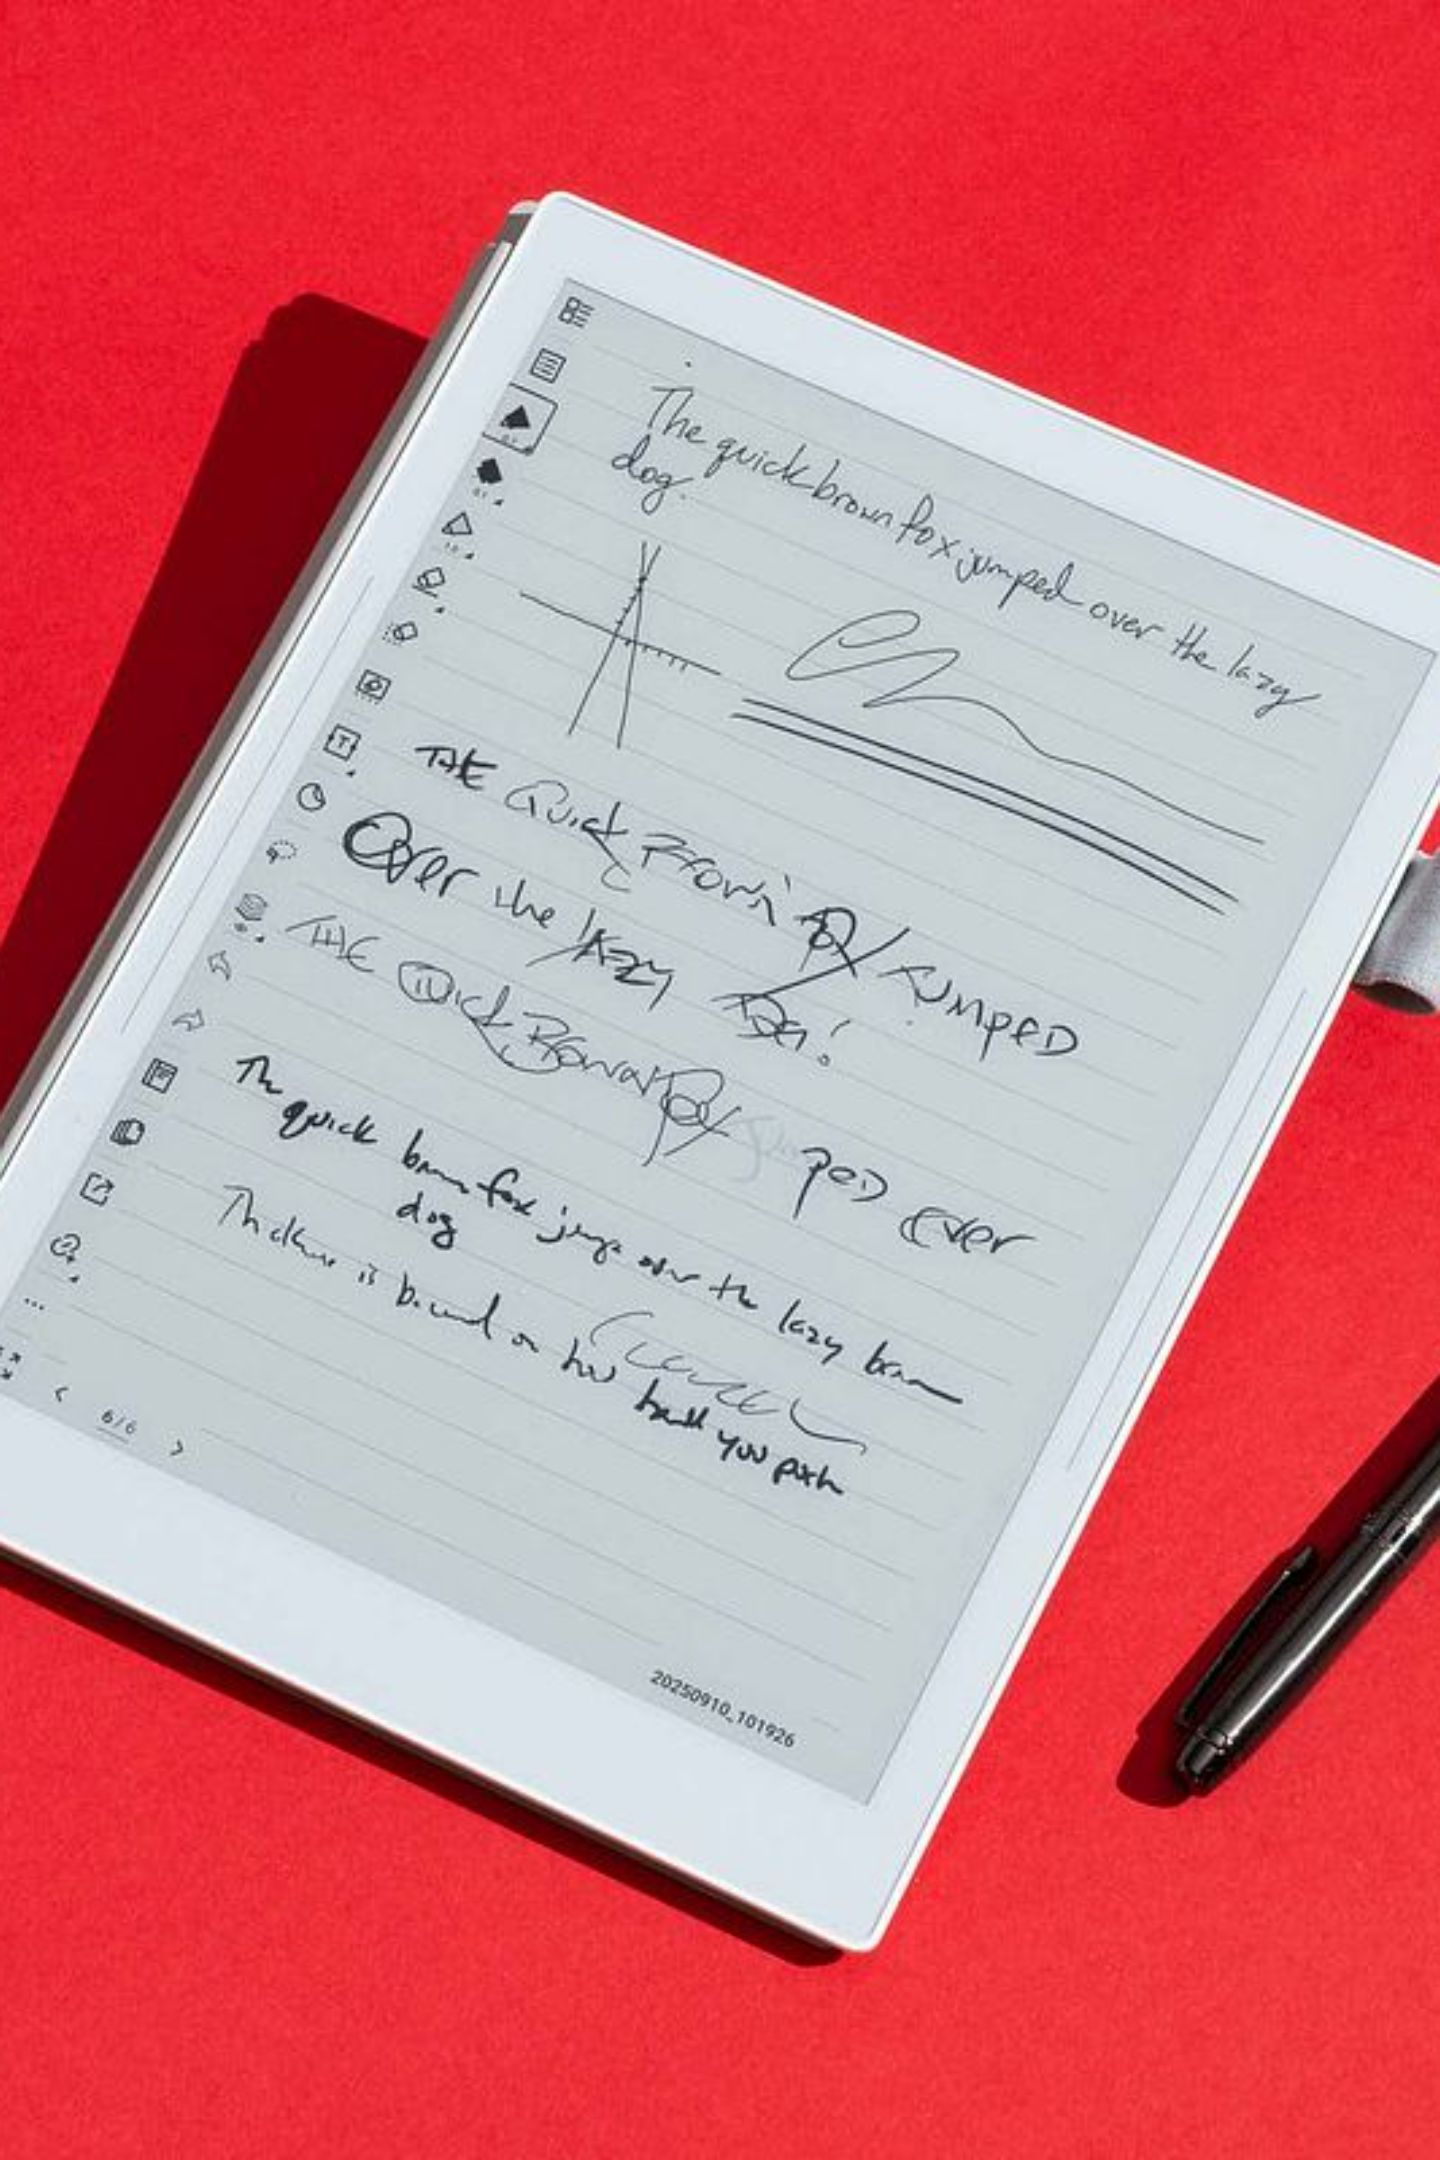 The quick brown fox jumped over the lazy
dog.
THE Quick Brown Fox Jumped
Over the lazy Dog!
THE Quick Brown Fox Jumped Over
The quick brown fox jumps over the lazy brown
dog
Thickness is based on how hard you push
6/6
20250910_101926